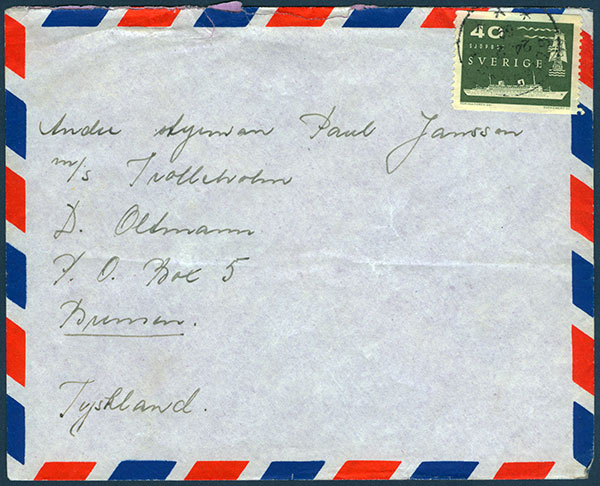 40
SJÖPOST
SVERIGE
Andre styrman Paul Jansson
m/s Trolleholm
D. Oltmann
P. O. Box 5
Bremen.
Tyskland.